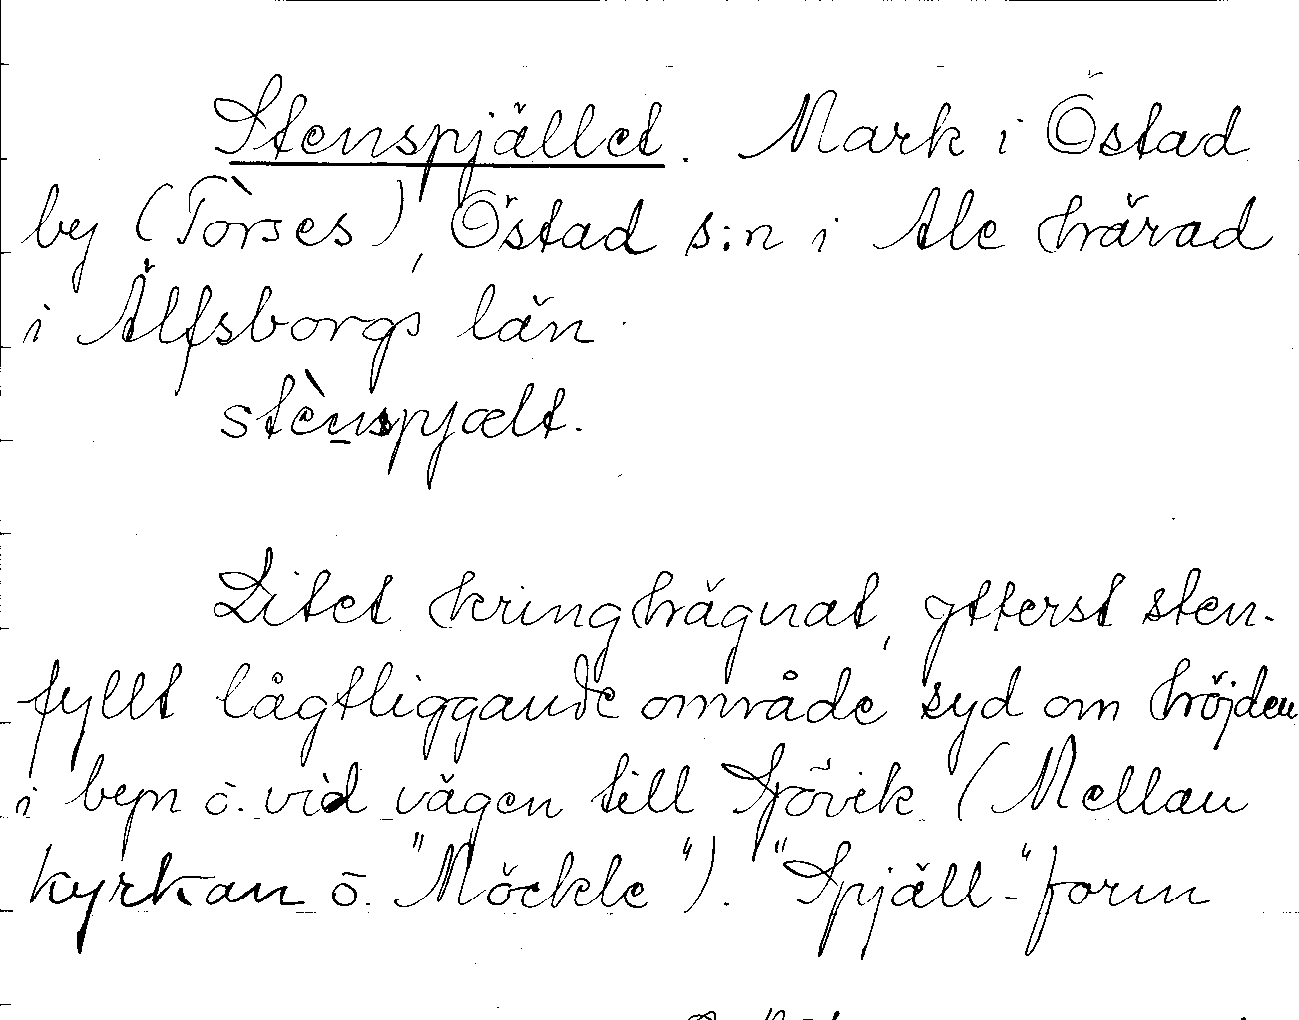 Stenspjället. Mark i Östad
by (Tòrses), Östad s:n i Ale härad
i Älfsborgs län.
stènspjælt.
Litet kringhägnat, ytterst sten-
fyllt lågtliggande område syd om höjden
i byn ö. vid vägen till Sjövik (Mellan
kyrkan ō. "Möckle"). "Spjäll-"form